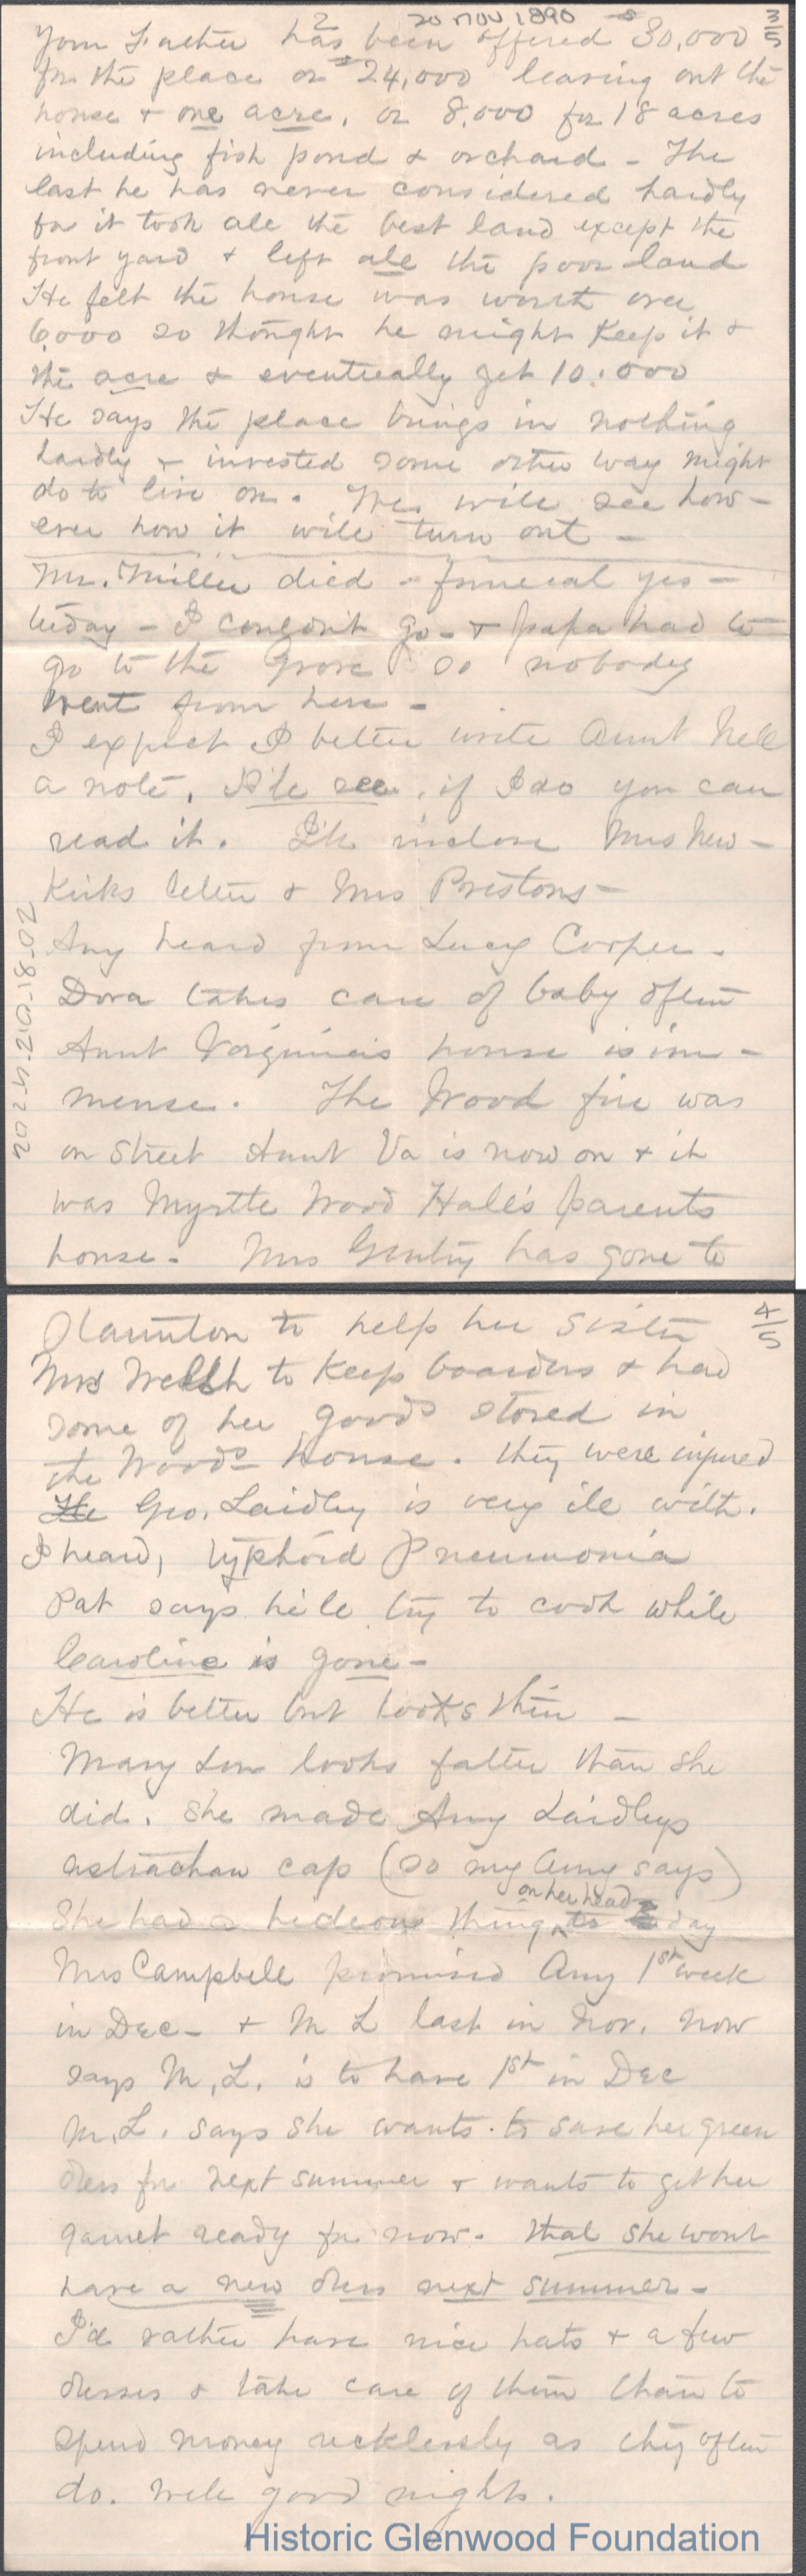 2 20 NOV 1890 3/5
Your Father has been offered $30,000
for the place or $24,000 leaving out the
house & one acre, or 8,000 for 18 acres
including fish pond & orchard - The
last he has never considered hardly
for it took all the best land except the
front yard & left all the poor land
He felt the house was worth over
6,000 so thought he might keep it &
the acre & eventually get 10,000
He says the place brings in nothing
hardly & invested some other way might
do to live on. We will see how-
ever how it will turn out -
Mr. Miller died - funeral yes-
terday - I couldn't go - & papa had to
go to the Grove so nobody
went from here -
I expect I better write Aunt Nell
a note, I'le see, if I do you can
read it. I'le inclose Mrs New-
kirks letter & Mrs Prestons -
Amy heard from Lucy Cooper -
Dora takes care of baby often
Aunt Virginia's house is im-
mense. The Wood fire was
on street Aunt Va is now on & it
was Myrtle Wood Hale's parents
house. Mrs Gentry has gone to
2018.02.4.202
4/5
Staunton to help her sister
Mrs Welsh to keep boarders & had
some of her goods stored in
the Woods house. they were injured
He Geo. Laidley is very ill with.
I heard, typhoid Pneumonia
Pat says he'le try to cook while
Caroline is gone -
He is better but looks thin -
Mary Lou looks fatter than she
did. She made Amy Laidleys
astrachan cap (so my Amy says)
on her head
She had a hideous thing to day
Mrs Campbell promised Amy 1st week
in Dec - & M L last in Nov. now
says M, L. is to have 1st in Dec
M, L. says she wants to save her green
dress for next summer & wants to get her
garnet ready for now. that she wont
have a new dress next summer -
I'd rather have nice hats & a few
dresses & take care of them than to
spend money recklessly as they often
do. Well good night.
Historic Glenwood Foundation